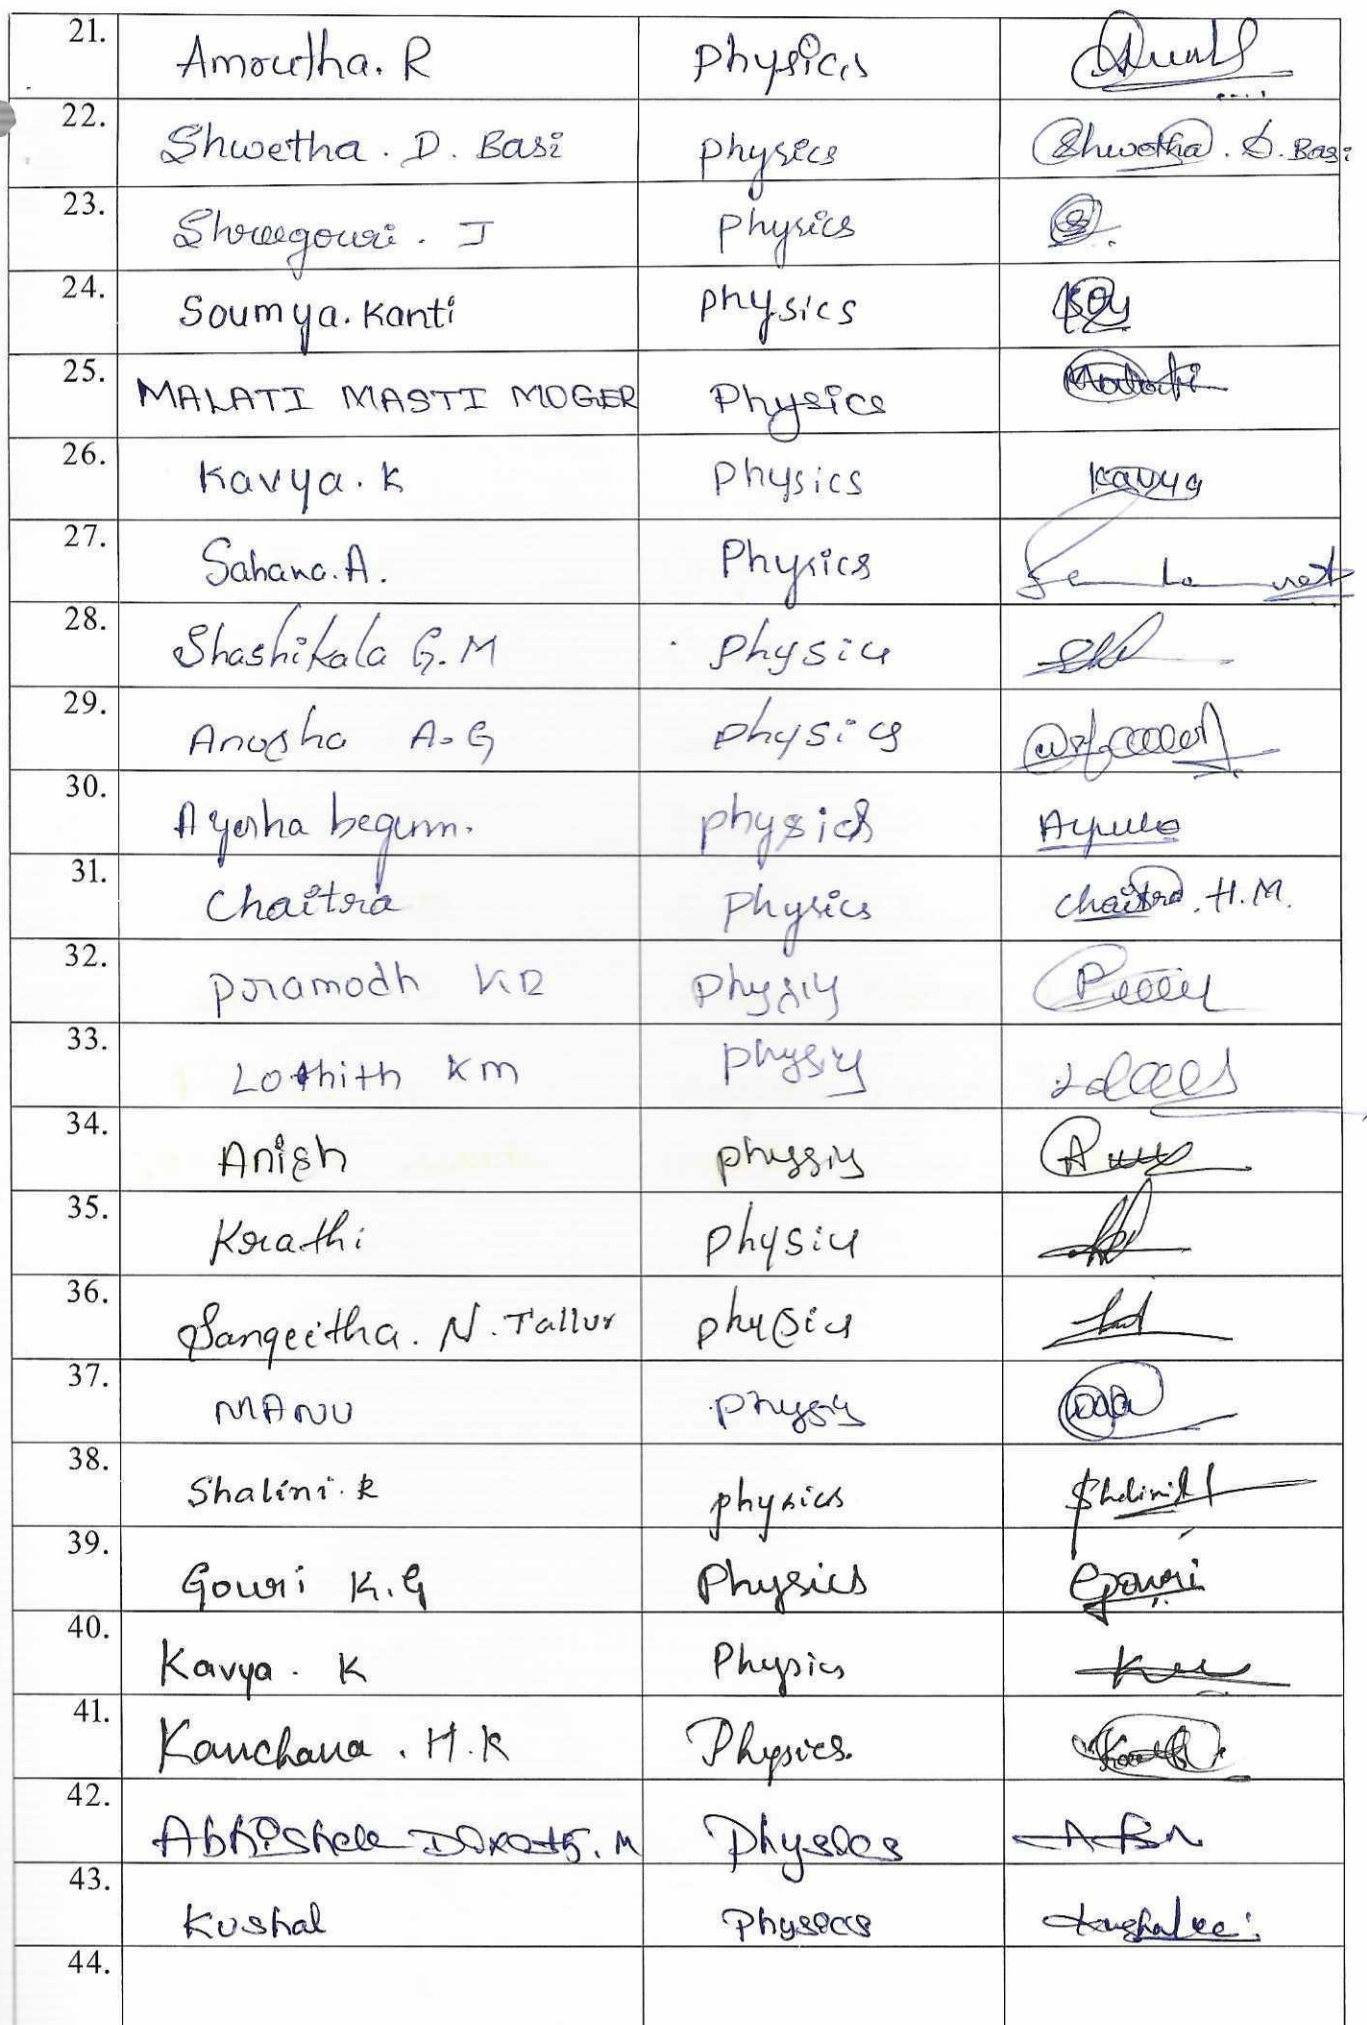 21. Amrutha. R Physics
22. Shwetha. D. Basi Physics Shwetha. D. Basi
23. Shreegouri. J Physics
24. Soumya. Kanti Physics
25. MALATI MASTI MOGER Physics Malati
26. Kavya. K Physics Kavya
27. Sahana. A. Physics
28. Shashikala G. M Physics
29. Anusha A. G Physics
30. Ayesha begum. Physics
31. Chaitra Physics Chaitra. H. M.
32. Pramodh KR Physics
33. Lothith KM Physics
34. Anish Physics
35. Krathi Physics
36. Sangeetha. N. Tallur Physics
37. MANU Physics
38. Shalini. R Physics Shalini
39. Gouri K. G Physics Gouri
40. Kavya. K Physics
41. Kanchana. H. R Physics.
42. Abhishek M Physics
43. Kushal Physics
44.